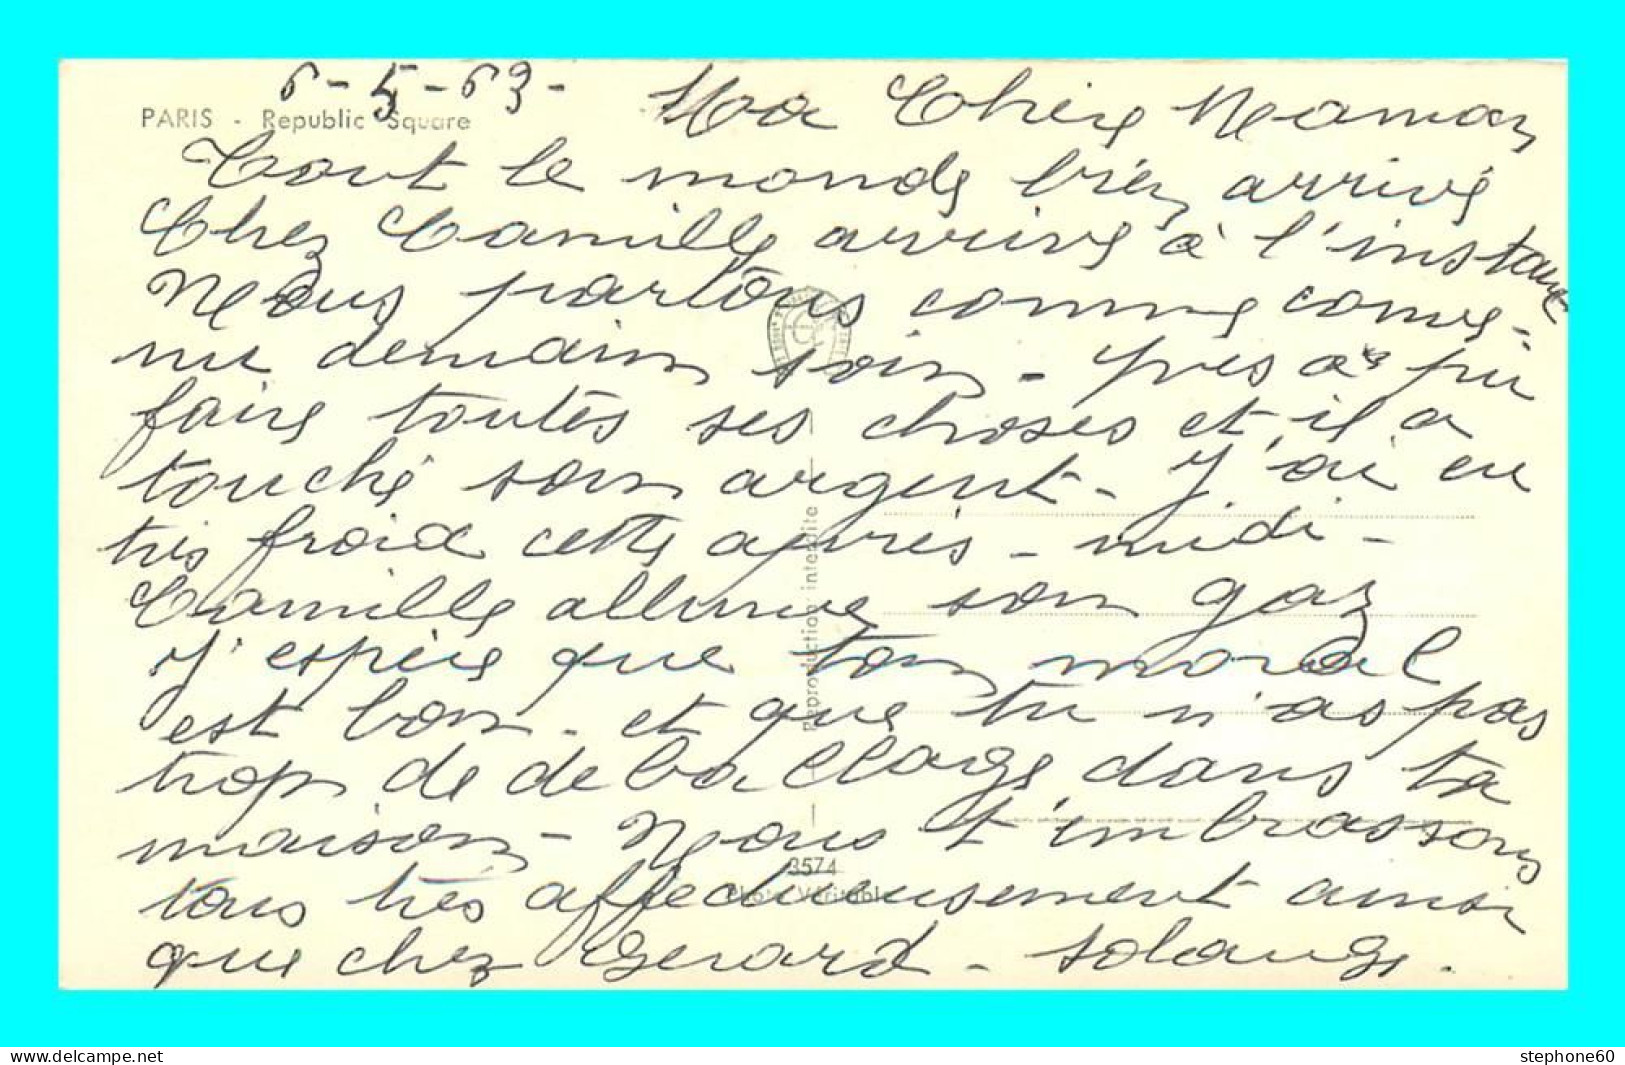 6-5-63-
PARIS - Republic Square
Ma Chère Maman
Tout le monde bien arrivé
Chez Camille arrive à l'instant
Nous partons comme conve-
nu demain soir - Yves a pu
faire toutes ses choses et il a
touché son argent - J'ai eu
très froid cette après-midi -
Camille allume son gaz
J'espère que ton moral
est bon - et que tu n'as pas
trop de deballage dans ta
maison - Nous t'embrassons
tous très affectueusement ainsi
que chez Gerard - Solange.
Reproduction interdite
3574
Photo Véritable
www.delcampe.net
stephone60